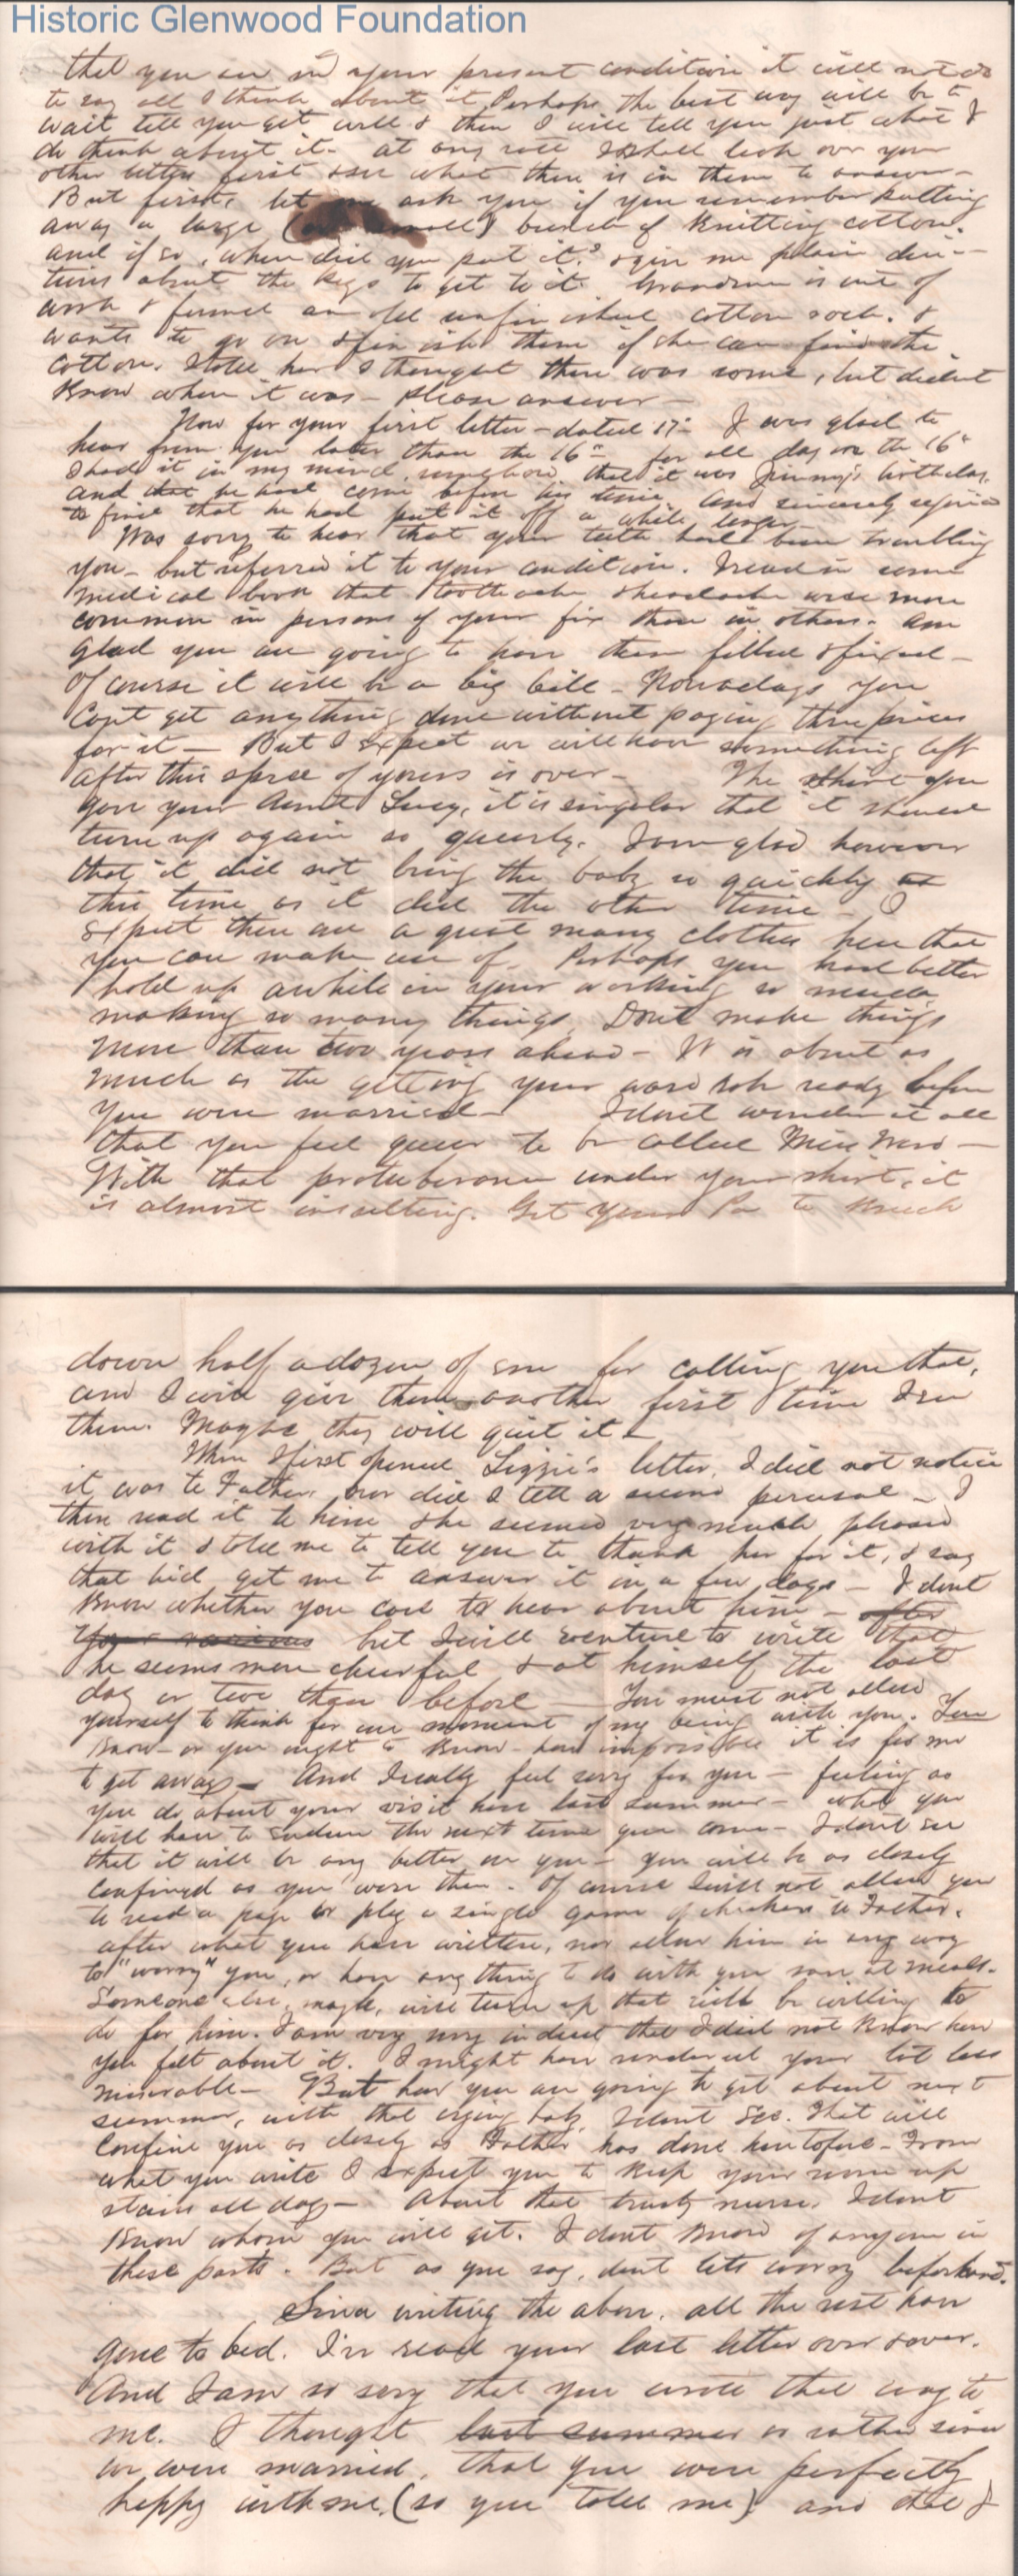 Historic Glenwood Foundation
that you are in your present condition it will not do
to say all I think about it. Perhaps the best way will be to
wait till you get well & then I will tell you just what I
do think about it. at any rate I shall look over your
other letters first & see what there is in them to answer—
But first, let me ask you if you remember putting
away a large (or small) bunch of Knitting cotton.
and if so, where did you put it? & give me plain direc-
tions about the keys to get to it. Grandma is out of
work & found an old unfinished cotton sock. &
wants to go on & finish them if she can find the
cotton. I told her I thought there was some, but didnt
Know where it was— please answer—
Now for your first letter— dated 17th I was glad to
hear from you later than the 16th for all day on the 16th
I had it in my mind, somehow, that it was Jimmy's birthday,
and that he had come before his time. and sincerely rejoiced
to find that he had put it off a while longer—
Was sorry to hear that your teeth had been troubling
you— but referred it to your condition. I read in some
medical book that toothache & headache were more
common in persons of your fix than in others. am
glad you are going to have them filled & fixed—
Of course it will be a big bill— Nowadays you
Can't get anything done without paying three prices
for it— But I expect we will have something left
after this spree of yours is over— The shirt you
gave your Aunt Lucy, it is singular that it should
turn up again so queerly. I am glad however
that it did not bring the baby so quickly as
this time as it did the other time— I
expect there are a great many clothes here that
you can make use of. Perhaps you had better
hold up awhile in your working so much
making so many things. Dont make things
more than two years ahead— It is about as
much as the getting your ward robe ready before
you were married— I dont wonder at all
that you feel queer to be called Miss Ward—
With that protuberance under your shirt, it
is almost insulting. Get your Pa to knock
down half a dozen of em for calling you that,
and I will give them another first time I see
them. Maybe they will quit it—
When I first opened Lizzie's letter, I did not notice
it was to Father, nor did I till a second perusal— I
then read it to him & he seemed very much pleased
with it & told me to tell you to thank her for it, & say
that he'd get me to answer it in a few days— I dont
Know whether you care to hear about him— after
Your various but I will venture to write that
he seems more cheerful & at himself the last
day or two than before— You must not allow
yourself to think for one moment of my being with you. You
Know— or you ought to Know— how impossible it is for me
to get away— And I really feel sorry for you— feeling as
you do about your visit here last summer— what you
will have to endure the next time you come— I dont see
that it will be any better on you— you will be as closely
Confined as you were then. Of course I will not allow you
to read a page or play a single game of checkers to Father.
after what you have written, nor allow him in any way
to "worry" you, or have anything to do with you save at meals.
Someone else, maybe, will turn up that will be willing to
do for him. I am very sorry indeed that I did not know how
you felt about it. I might have rendered your lot less
miserable— But how you are going to get about next
summer, with that crying baby, I dont see. That will
Confine you as closely as Father has done heretofore— From
what you write I expect you to keep your room up
stairs all day— About that trusty nurse, I dont
Know whom you will get. I dont know of anyone in
these parts. But as you say, dont lets worry beforehand.
Since writing the above, all the rest have
gone to bed. I've read your last letter over & over.
And I am so sorry that you wrote that way to
me. I thought last summer or rather since
we were married, that you were perfectly
happy with me, (so you told me) and that I